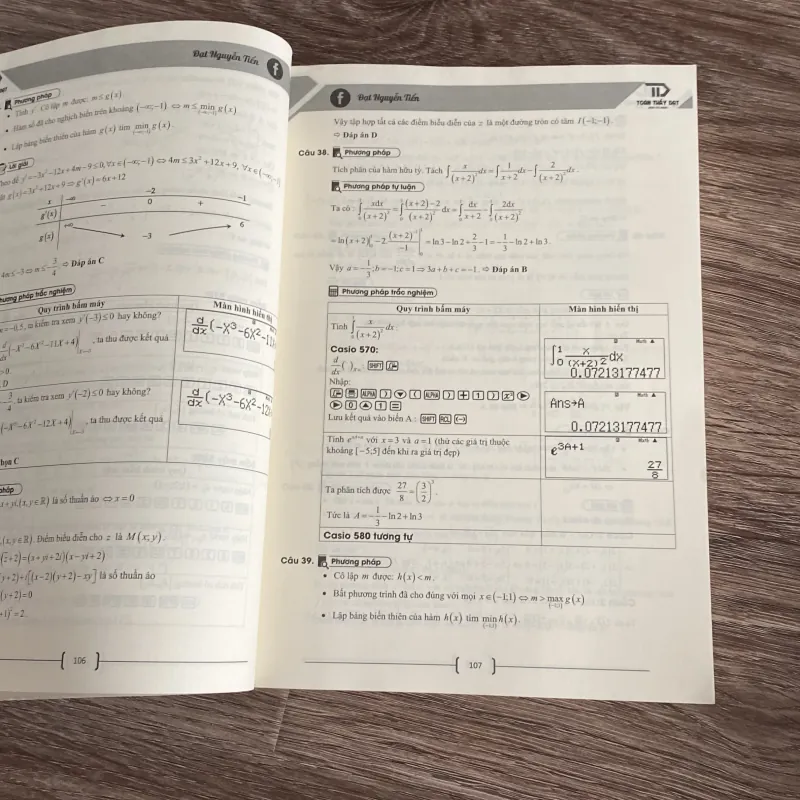 Đạt Nguyễn Tiến
Phương pháp
• Tính y'. Cô lập m được: m ≤ g(x).
• Hàm số đã cho nghịch biến trên khoảng (-∞;-1) ⇔ m ≤ min g(x)
(-∞;-1)
• Lập bảng biến thiên của hàm g(x) tìm min g(x).
(-∞;-1)
Lời giải
y' = -3x² - 12x + 4m - 9 ≤ 0, ∀x ∈ (-∞;-1) ⇔ 4m ≤ 3x² + 12x + 9, ∀x ∈ (-∞;-1)
g(x) = 3x² + 12x + 9 ⇒ g'(x) = 6x + 12
x -∞ -2 -1
g'(x) - 0 +
g(x) +∞ -3 6
4m ≤ -3 ⇔ m ≤ -3/4. ⇨ Đáp án C
Phương pháp trắc nghiệm
Quy trình bấm máy Màn hình hiển thị
= -0.5, ta kiểm tra xem y'(-3) ≤ 0 hay không?
d/dx(-X³-6X²-11X+4), ta thu được kết quả
d/dx(-X³-6X²-11X
> 0.
D
3/4, ta kiểm tra xem y'(-2) ≤ 0 hay không?
(-X³-6X²-12X+4), ta thu được kết quả
d/dx(-X³-6X²-12X
họn C
pháp
x+yi, (x, y ∈ ℝ) là số thuần ảo ⇔ x = 0
(x, y ∈ ℝ). Điểm biểu diễn cho z là M(x;y).
(z̄+2) = (x+yi+2i)(x-yi+2)
y(y+2)+i[(x+2)(y+2)-xy] là số thuần ảo
(y+2) = 0
+1)² = 2.
106
Đạt Nguyễn Tiến
TOÁN THẦY ĐẠT
Vậy tập hợp tất cả các điểm biểu diễn của z là một đường tròn có tâm I(-1;-1).
⇨ Đáp án D
Câu 38. Phương pháp
Tích phân của hàm hữu tỷ. Tách ∫ x/(x+2)² dx = ∫ 1/(x+2) dx - ∫ 2/(x+2)² dx.
Phương pháp tự luận
Ta có: ∫₀¹ xdx/(x+2)² = ∫₀¹ ((x+2)-2)/(x+2)² dx = ∫₀¹ dx/(x+2) - ∫₀¹ 2dx/(x+2)²
= ln(x+2)|₀¹ - 2.(x+2)⁻¹/-1|₀¹ = ln3 - ln2 + 2/3 - 1 = -1/3 - ln2 + ln3.
Vậy a = -1/3; b = -1; c = 1 ⇒ 3a + b + c = -1. ⇨ Đáp án B
Phương pháp trắc nghiệm
Quy trình bấm máy Màn hình hiển thị
Tính ∫₀¹ x/(x+2)² dx
Casio 570:
d/dx( )ₓ₌, SHIFT
∫₀¹ X/(X+2)² dx
0.07213177477
Nhập:
ALPHA ) ▼ ( ALPHA ) + 1 ) x² ▶
▶ 0 ▲ 1 =
Lưu kết quả vào biến A: SHIFT RCL (-)
Ans→A
0.07213177477
Tính e^(xA+a) với x = 3 và a = 1 (thử các giá trị thuộc
khoảng [-5;5] đến khi ra giá trị đẹp)
e^(3A+1)
27/8
Ta phân tích được 27/8 = (3/2)³.
Tức là A = -1/3 - ln2 + ln3
Casio 580 tương tự
Câu 39. Phương pháp
• Cô lập m được: h(x) < m.
• Bất phương trình đã cho đúng với mọi x ∈ (-1;1) ⇔ m > max g(x)
(-1;1)
• Lập bảng biến thiên của hàm h(x) tìm min h(x).
(-1;1)
107